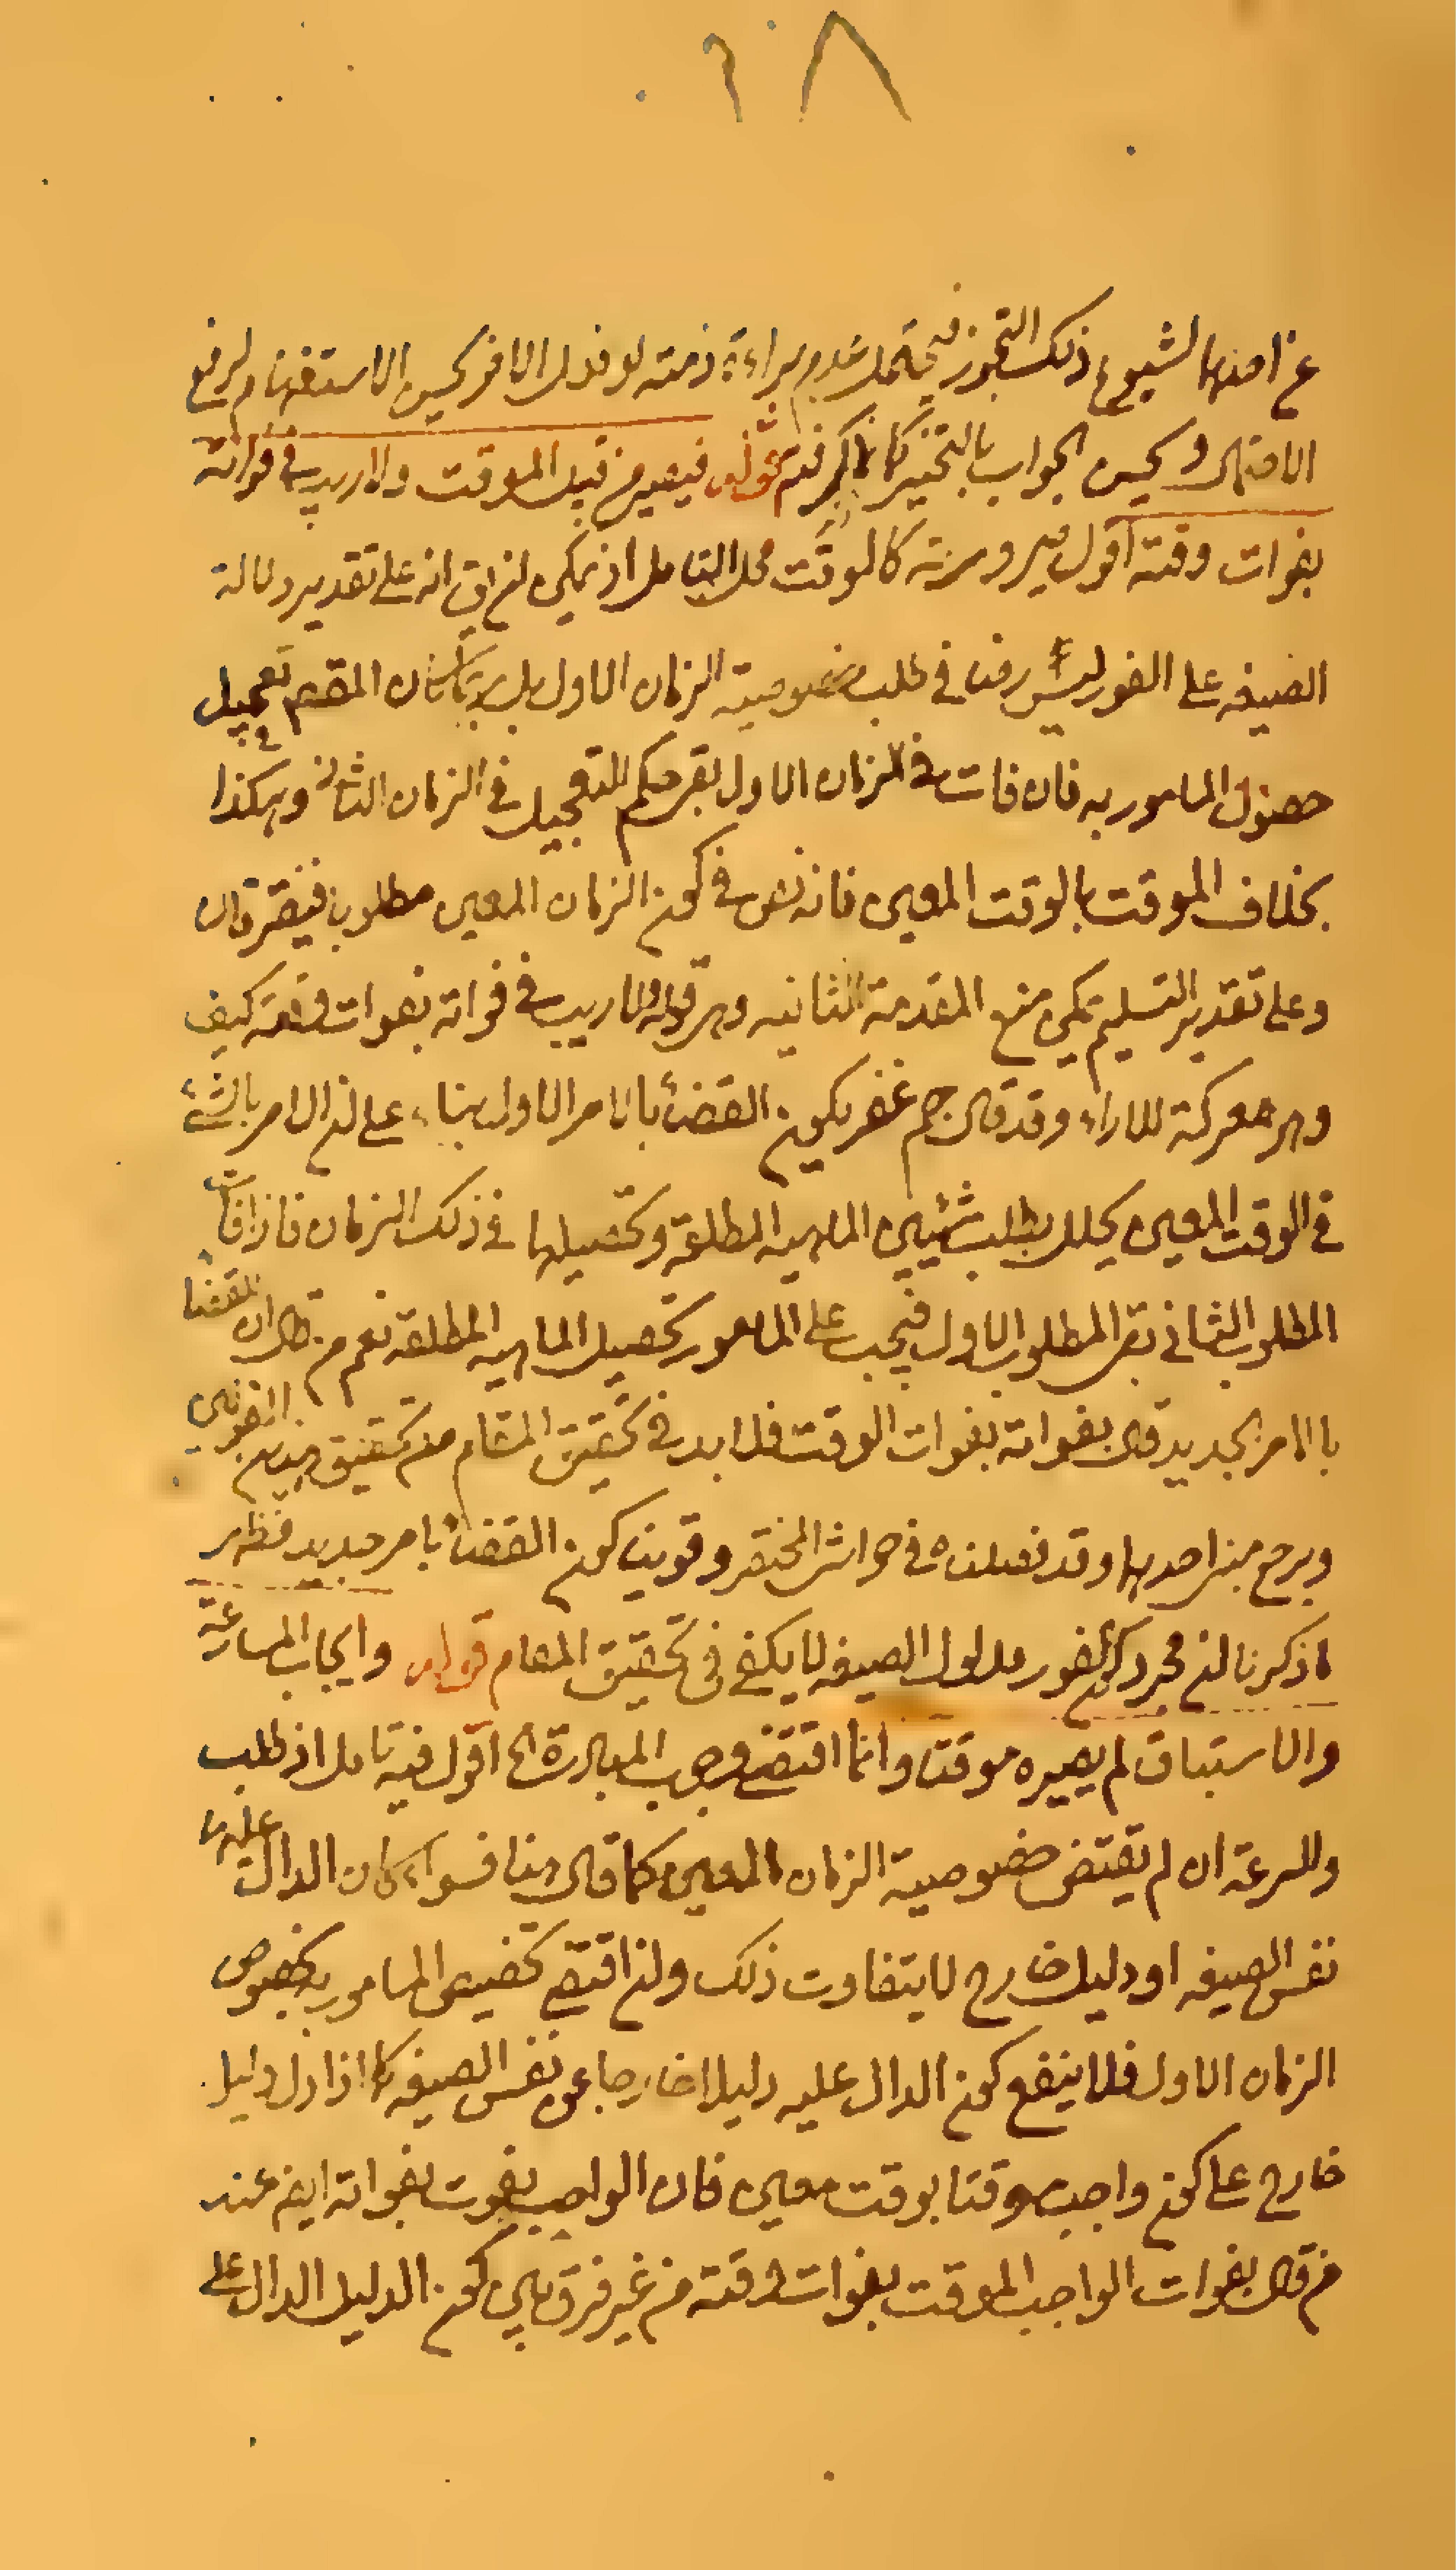 ١٨
عن احدهما لشيوع ذلك التجوز فيحتمل عدم براءة ذمته لو فعل الاخر فيحسن الاستفهام لرفع
الاحتمال ويحسن الجواب بالتخيير كما ذكر فتم قوله فيصير من قبيل الموقت ولا ريب في فواته
بفوات وقته اقول صيرورته كالموقت محل التامل اذ يمكن ان يق انه على تقدير دلالة
الصيغه على الفور ليس نصا في طلب خصوصية الزمان الاول بل ربما كان المقصم تعجيل
حصول المامور به فان فات في الزمان الاول بقي حكم التعجيل في الزمان الثاني وهكذا
بخلاف الموقت بالوقت المعين فانه نص في كون الزمان المعين مطلوبا فيفترقان
وعلى تقدير التسليم يمكن منع المقدمة الثانيه وهو قوله ولا ريب في فواته بفوات وقته كيف
وهو معركة للاراء وقد قال جم غفر بكون القضاء بالامر الاول بناء على ان الامر بالشئ
في الوقت المعين يحلل بطلب شيئين الماهيه المطلقة وتحصيلها في ذلك الزمان فاذا فات
المطلوب الثاني بقى المطلوب الاول فيجب على المامور تحصيل الماهيه المطلقة نعم من قال ان القضاء
بالامر الجديد قال بفواته بفوات الوقت فلا بد في تحقيق المقام من تحقيق هذين القولين
ويرجح مبنى احدهما وقد فصلناه في حواشى المختصر وقوينا كون القضاء بامر جديد فظهر
مما ذكرنا ان مجرد كون الفور مدلول الصيغه لا يكفي في تحقيق المقام قوله وايجاب المسارعة
والاستباق لم يصيره موقتا وانما اقتضى وجوب المبادرة الخ اقول فيه تامل اذ طلب
والسرعة ان لم يقتض خصوصية الزمان المعين كما قال هنا فسواء كان الدال عليها
نفس الصيغه او دليل خارج لا يتفاوت ذلك وان اقتضى تخصيص المامور به بخصوص
الزمان الاول فلا ينفع كون الدال عليه دليلا خارجا عن نفس الصيغه كما اذا دل دليل
خارج على كون واجب موقتا بوقت معين فان الواجب يفوت بفواته ايض عند
من قال بفوات الواجب الموقت بفوات وقته من غير فرق بين كون الدليل الدال على